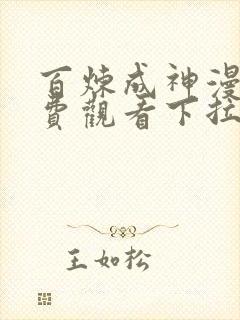 百煉成神漫
費觀看下拉
王如松